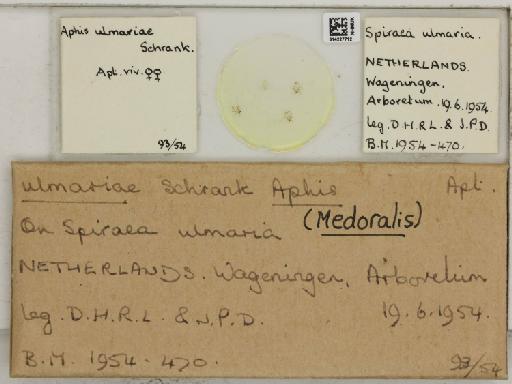 Aphis ulmariae
Schrank.
Apt. viv. ♀♀
93/54
Spiraea ulmaria.
NETHERLANDS.
Wageningen.
Arboretum. 19.6.1954.
leg. D.H.R.L. & J.P.D.
B.M. 1954-470.
ulmariae Schrank Aphis Apt.
(Medoralis)
On Spiraea ulmaria
NETHERLANDS. Wageningen, Arboretum
leg. D.H.R.L. & J.P.D. 19.6.1954.
B.M. 1954-470. 93/54